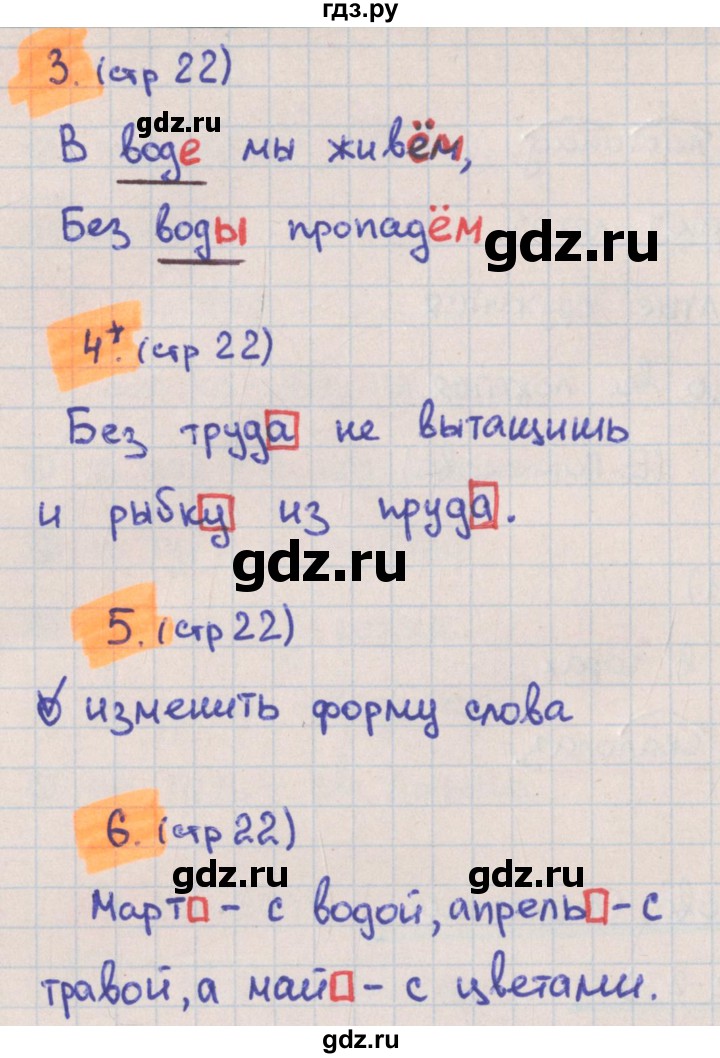 гдз.ру
3. (стр 22)
gdz.ru
В воде мы живём,
Без воды пропадём
gdz.ru
4*. (стр 22)
Без труда не вытащишь
и рыбку из пруда.
gdz.ru
5. (стр 22)
изменить форму слова
6. (стр 22)
gdz.ru
Март – с водой, апрель – с
травой, а май – с цветами.
gdz.ru